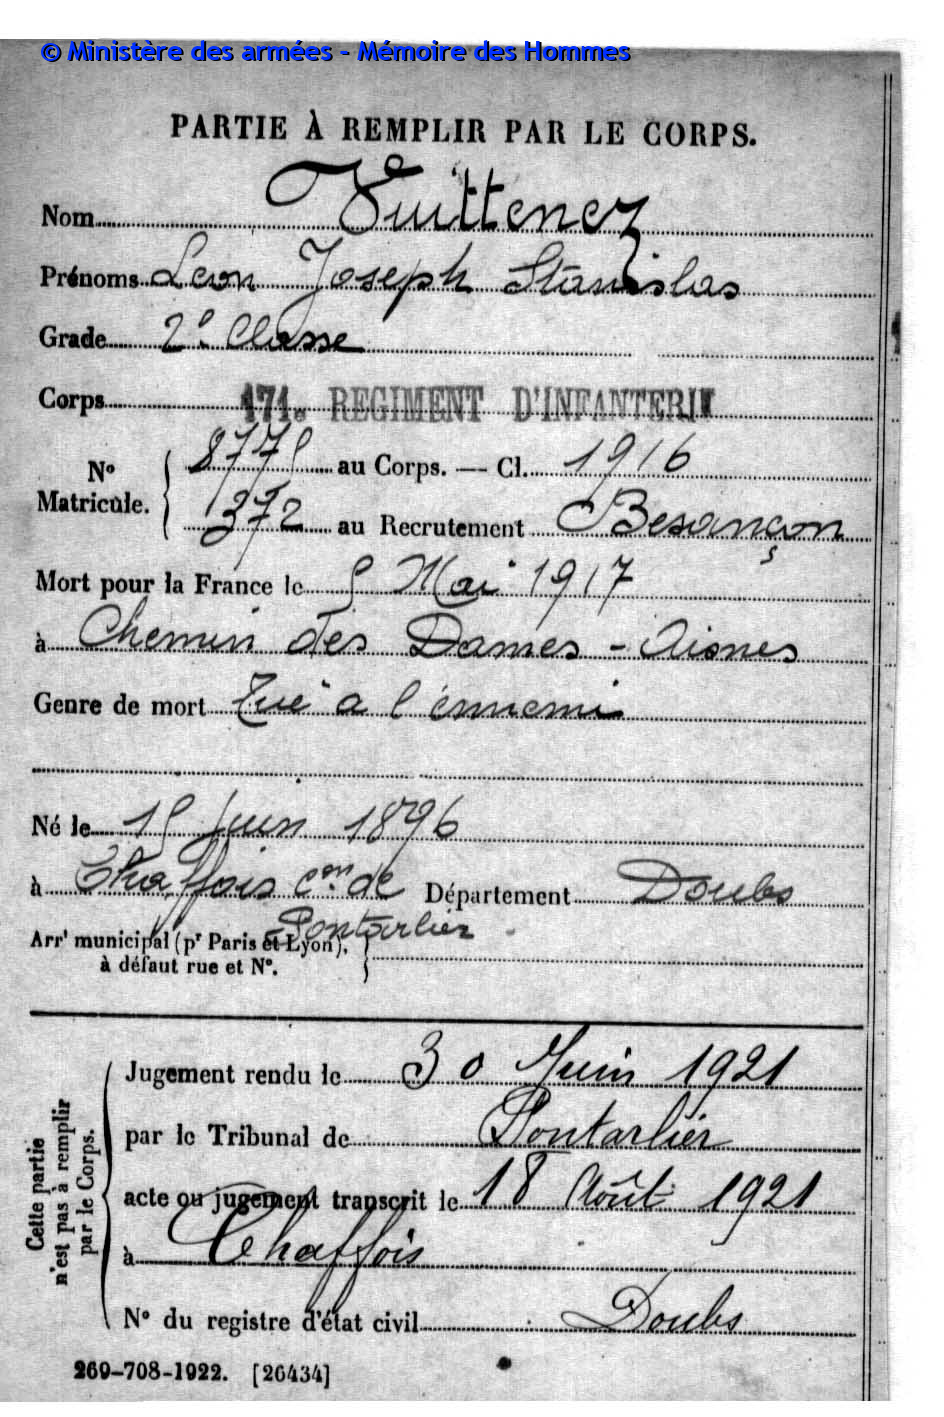 © Ministère des armées - Mémoire des Hommes
PARTIE À REMPLIR PAR LE CORPS.
Nom Vuittenez
Prénoms Léon Joseph Stanislas
Grade 2e Classe
Corps 171e REGIMENT D'INFANTERIE
No Matricule. { 8775 au Corps. — Cl. 1916
372 au Recrutement Besançon
Mort pour la France le 5 Mai 1917
à Chemin des Dames - Aisnes
Genre de mort Tué à l'ennemi
Né le 15 Juin 1896
à Chaffois con de Pontarlier Département Doubs
Arrt municipal (pr Paris et Lyon), à défaut rue et No.
Cette partie n'est pas à remplir par le Corps.
Jugement rendu le 30 Juin 1921
par le Tribunal de Pontarlier
acte ou jugement transcrit le 18 Août 1921
à Chaffois
No du registre d'état civil Doubs
269-708-1922. [26434]